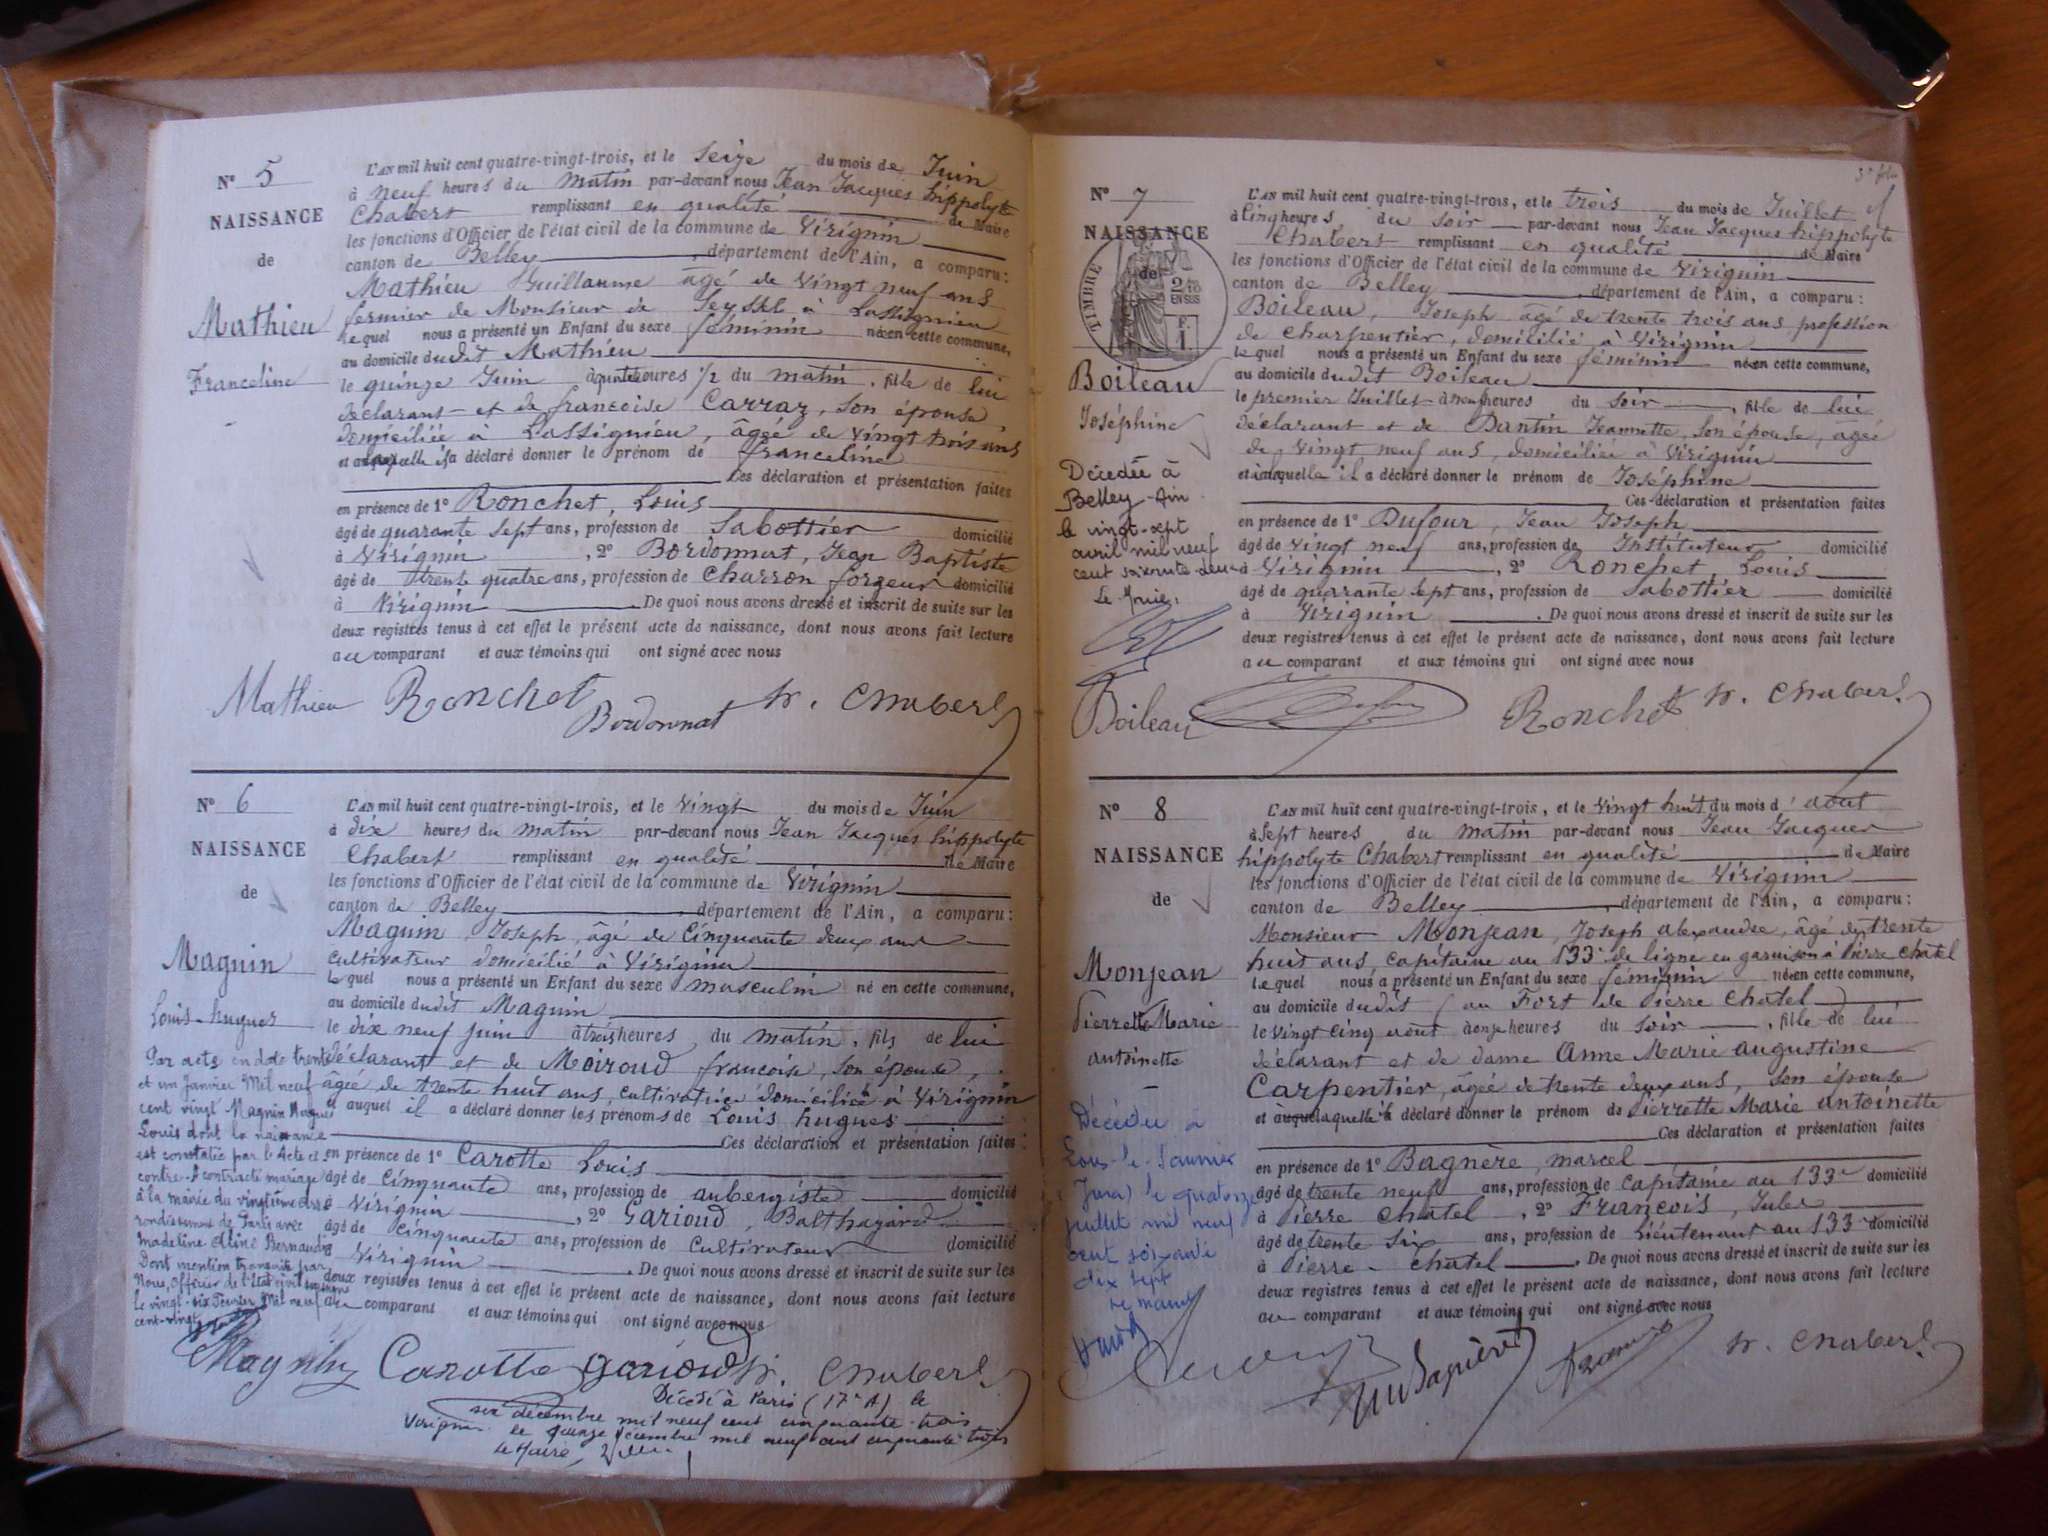 N° 5
NAISSANCE
de
Mathieu
Franceline
L'AN mil huit cent quatre-vingt-trois, et le Seize du mois de Juin
à neuf heures du matin par-devant nous Jean Jacques hippolyte
Chabert remplissant en qualité de Maire
les fonctions d'Officier de l'état civil de la commune de Virignin
canton de Belley, département de l'Ain, a comparu:
Mathieu Guillaume âgé de Vingt neuf ans
fermier de Monsieur de Seyssel à Lassignieu
lequel nous a présenté un Enfant du sexe féminin né en cette commune,
au domicile dudit Mathieu
le quinze Juin à heures 1/2 du matin, fille de lui
déclarant et de françoise Carraz, son épouse,
domiciliée à Lassignieu, âgée de vingt trois ans
et a laquelle il a déclaré donner le prénom de franceline
Ces déclaration et présentation faites
en présence de 1° Ronchet, Louis
âgé de quarante sept ans, profession de Sabottier domicilié
à Virignin, 2° Bordonnat, Jean Baptiste
âgé de trente quatre ans, profession de Charron forgeur domicilié
à Virignin. De quoi nous avons dressé et inscrit de suite sur les
deux registres tenus à cet effet le présent acte de naissance, dont nous avons fait lecture
au comparant et aux témoins qui ont signé avec nous
Mathieu Ronchet Bordonnat h. Chabert
N° 6
NAISSANCE
de
Magnin
Louis-hugues
L'AN mil huit cent quatre-vingt-trois, et le Vingt du mois de Juin
à dix heures du matin par-devant nous Jean Jacques hippolyte
Chabert remplissant en qualité de Maire
les fonctions d'Officier de l'état civil de la commune de Virignin
canton de Belley, département de l'Ain, a comparu:
Magnin, Joseph, âgé de Cinquante deux ans
cultivateur domicilié à Virignin
Lequel nous a présenté un Enfant du sexe masculin né en cette commune,
au domicile dudit Magnin
le dix neuf juin à trois heures du matin, fils de lui
déclarant et de Moiroud françoise, son épouse,
âgée de trente huit ans, cultivatrice domiciliée à Virignin
et auquel il a déclaré donner les prénoms de Louis hugues
Ces déclaration et présentation faites:
en présence de 1° Carotte Louis
âgé de Cinquante ans, profession de aubergiste domicilié
à Virignin, 2° Garioud, Balthazard
âgé de Cinquante ans, profession de Cultivateur domicilié
Virignin. De quoi nous avons dressé et inscrit de suite sur les
deux registres tenus à cet effet le présent acte de naissance, dont nous avons fait lecture
au comparant et aux témoins qui ont signé avec nous
Par acte en date trente
et un Janvier Mil neuf
cent vingt Magnin Hugues
Louis dont la naissance
est constatée par l'Acte ci
contre a contracté mariage
à la mairie du vingtième arr
rondissement de Paris avec
Madeleine Bernardin
Dont mention transcrite par
Nous, Officier de l'état civil
le vingt-six Février Mil neuf
cent-vingt
Magnin Carotte garioud h. Chabert
Décédé à Paris (17e A) le
six décembre mil neuf cent cinquante-trois
Virignin le quinze décembre mil neuf cent cinquante trois
Le Maire
N° 7
NAISSANCE
de
TIMBRE
2/10
EN SUS
Boileau
Joséphine
Décédée à
Belley-Ain
le vingt-sept
avril mil neuf
cent soixante-deux
Le Maire,
L'AN mil huit cent quatre-vingt-trois, et le trois du mois de Juillet
à Cinq heures du soir par-devant nous Jean Jacques hippolyte
Chabert remplissant en qualité de Maire
les fonctions d'Officier de l'état civil de la commune de Virignin
canton de Belley, département de l'Ain, a comparu:
Boileau, Joseph âgé de trente trois ans, profession
de charpentier, domicilié à Virignin
Lequel nous a présenté un Enfant du sexe féminin née en cette commune,
au domicile dudit Boileau
le premier Juillet à neuf heures du soir, fille de lui
déclarant et de Dantin Jeannette, son épouse, âgée
de vingt neuf ans, domiciliée à Virignin
et a laquelle il a déclaré donner le prénom de Joséphine
Ces déclaration et présentation faites
en présence de 1° Dufour, Jean Joseph
âgé de vingt neuf ans, profession de Instituteur domicilié
à Virignin, 2° Ronchet, Louis
âgé de quarante sept ans, profession de Sabottier domicilié
à Virignin. De quoi nous avons dressé et inscrit de suite sur les
deux registres tenus à cet effet le présent acte de naissance, dont nous avons fait lecture
au comparant et aux témoins qui ont signé avec nous
Boileau Dufour Ronchet h. Chabert
N° 8
NAISSANCE
de
Monjean
Pierrette Marie
antoinette
Décédée à
Lons-le-Saunier
(Jura) le quatorze
juillet mil neuf
cent soixante
dix sept
le maire
L'AN mil huit cent quatre-vingt-trois, et le Vingt huit du mois d'août
à Sept heures du matin par-devant nous Jean Jacques
hippolyte Chabert remplissant en qualité de Maire
les fonctions d'Officier de l'état civil de la commune de Virignin
canton de Belley, département de l'Ain, a comparu:
Monsieur Monjean, Joseph alexandre, âgé de trente
huit ans, capitaine au 133e de ligne en garnison à Pierre Châtel
lequel nous a présenté un Enfant du sexe féminin née en cette commune,
au domicile dudit (au Fort de Pierre Châtel)
le vingt cinq août à onze heures du soir, fille de lui
déclarant et de dame Anne Marie augustine
Carpentier, âgée de trente deux ans, son épouse
et a laquelle il a déclaré donner le prénom de Pierrette Marie antoinette
Ces déclaration et présentation faites
en présence de 1° Bagnère, marcel
âgé de trente neuf ans, profession de Capitaine au 133e domicilié
à Pierre Châtel, 2° François, Jules
âgé de trente six ans, profession de Lieutenant au 133e domicilié
à Pierre-Châtel. De quoi nous avons dressé et inscrit de suite sur les
deux registres tenus à cet effet le présent acte de naissance, dont nous avons fait lecture
au comparant et aux témoins qui ont signé avec nous
h. Chabert